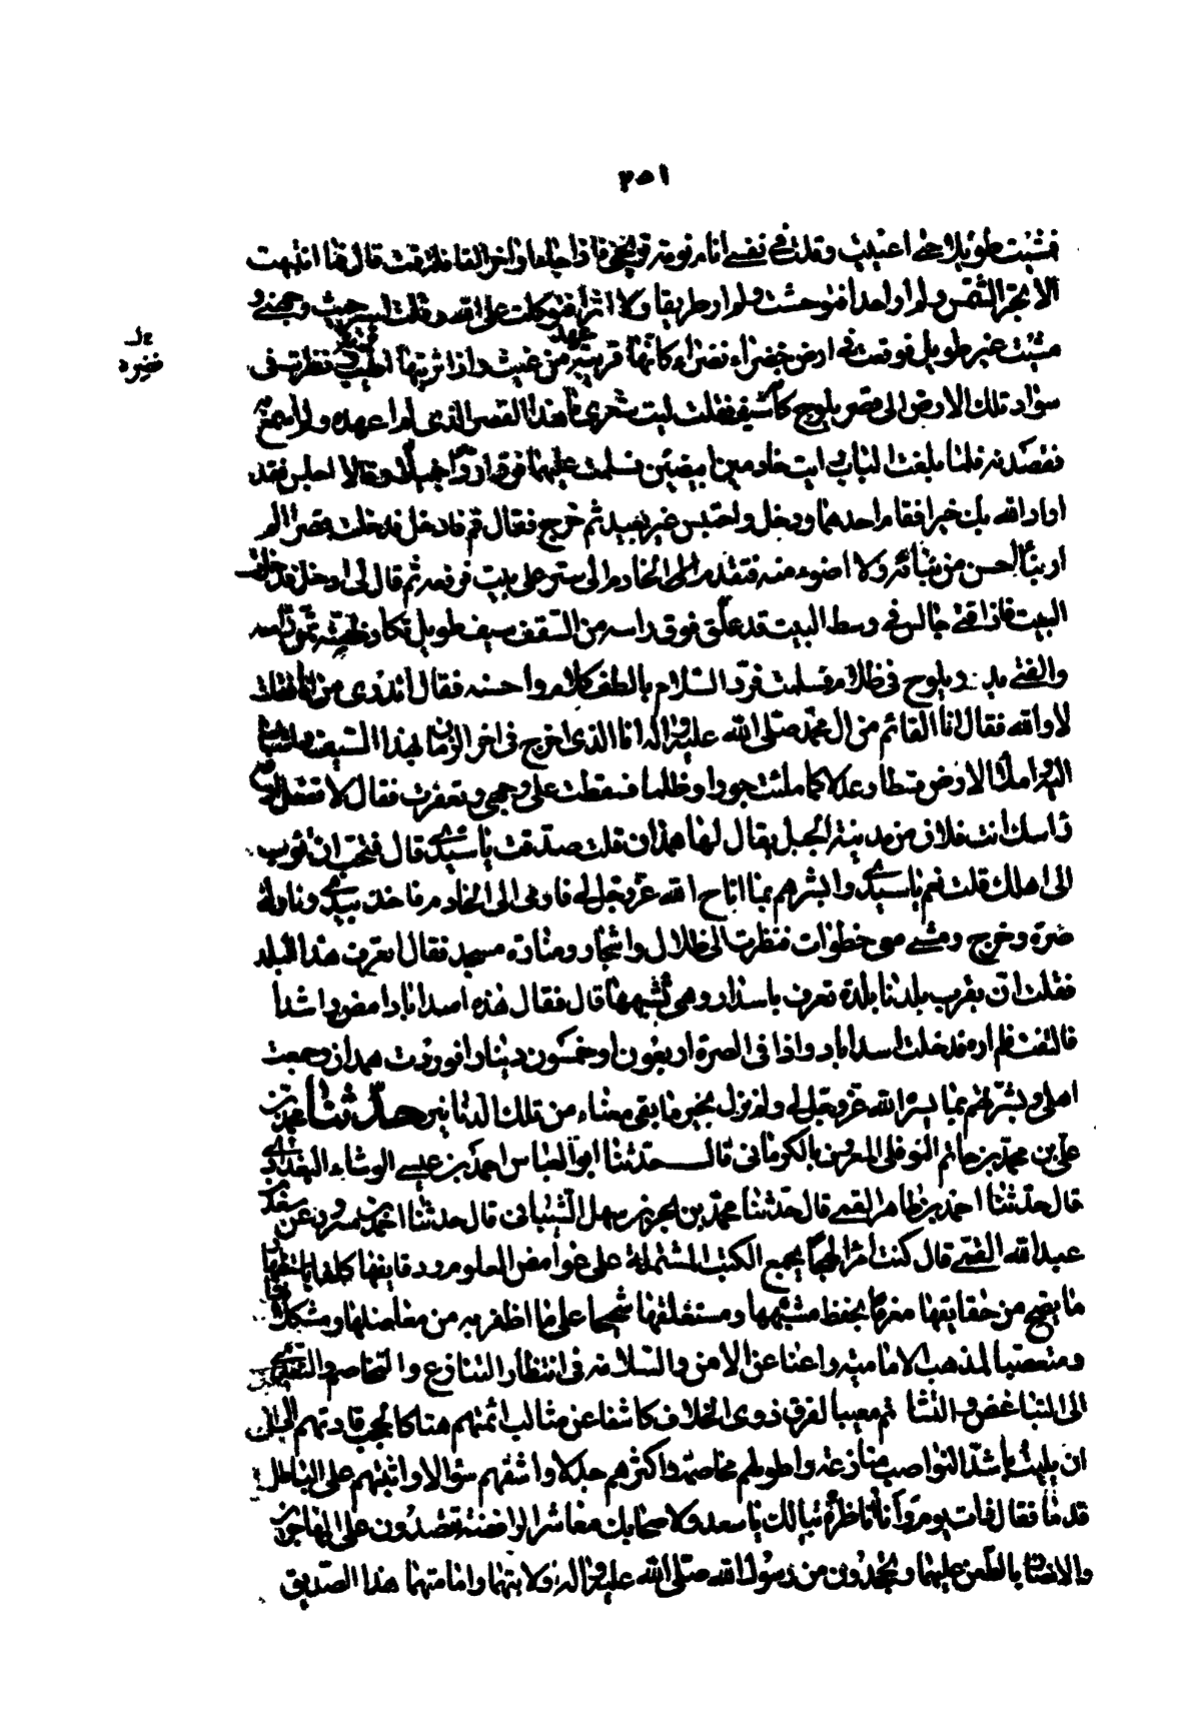 ٢٥١
فمشيت طويلا حتى اعييت وقلت في نفسي انام نومة تريحني فاذا جاء اواخر القافلة قمت قال فما انتبهت
الا بحر الشمس ولم ار احدا فتوحشت ولم ار طريقا ولا اثرا فتوكلت على الله وقلت اسير حيث وجهني و
مشيت غير طويل فوقعت في ارض خضراء نضراء كانها قريبة عهد من غيث واذا تربتها اطيب تربة فنظرت في
سواد تلك الارض الى قصر يلوح كانه سيف فقلت ليت شعري ما هذا القصر الذي لم اعهده ولم اسمع به
فقصدته فلما بلغت الباب رايت خادمين ابيضين فسلمت عليهما فردا ردا جميلا وقالا اجلس فقد
اراد الله بك خيرا فقام احدهما ودخل واحتبس غير بعيد ثم خرج فقال قم فادخل فدخلت قصرا لم
ار بناء احسن من بنائه ولا اضوء منه فتقدم الخادم الى ستر على بيت فرفعه ثم قال لي ادخل فدخلت
البيت فاذا فتى جالس في وسط البيت قد علق فوق راسه من السقف سيف طويل تكاد ظبته تمس راسه
والفتى بدر يلوح في ظلام فسلمت فرد السلام بالطف كلام واحسنه فقال اتدري من انا فقلت
لا والله فقال انا القائم من ال محمد صلى الله عليه واله انا الذي اخرج في اخر الزمان بهذا السيف واشار
اليه فاملأ الارض قسطا وعدلا كما ملئت جورا وظلما فسقطت على وجهي وتعفرت فقال لا تفعل ارفع
راسك انت فلان من مدينة الجبل يقال لها همدان قلت صدقت يا سيدي قال فتحب ان تؤب
الى اهلك قلت نعم يا سيدي وابشرهم بما اتاح الله عز وجل لي فاومى الى الخادم فاخذ بيدي وناولني
صرة وخرج ومشى معي خطوات فنظرت الى ظلال واشجار ومنارة مسجد فقال اتعرف هذا البلد
فقلت ان بقرب بلدنا بلدة تعرف باسداباد وهي تشبهها قال فقال هذه اسداباد امض راشدا
فالتفت فلم اره فدخلت اسداباد واذا في الصرة اربعون او خمسون دينارا فوردت همدان وجمعت
اهلي وبشرتهم بما يسره الله عز وجل لي ولم نزل بخير ما بقي معنا من تلك الدنانير حدثنا محمد بن
علي بن محمد بن حاتم النوفلي المعروف بالكرماني قال حدثنا ابو العباس احمد بن عيسى الوشاء البغدادي
قال حدثنا احمد بن طاهر القمي قال حدثنا محمد بن بحر بن سهل الشيباني قال حدثنا احمد بن مسرور عن سعد بن
عبد الله القمي قال كنت امرأ لهجا بجمع الكتب المشتملة على غوامض العلوم ودقايقها كلفا باستظهار
ما يصح من حقايقها مغرما بحفظ مشتبهها ومستغلقها شحيحا على ما اظفر به من معاضلها ومشكلاتها
ومتعصبا لمذهب الامامية راغبا عن الامن والسلامة في انتظار التنازع والتخاصم والتعدي
الى التباغض والتشاتم معيبا لفرق ذوي الخلاف كاشفا عن مثالب ائمتهم هتاكا لحجب قادتهم الى
ان بليت باشد النواصب منازعة واطولهم مخاصمة واكثرهم جدلا واشنعهم سؤالا واثبتهم على الباطل
قدما فقال ذات يوم وانا اناظره تبا لك يا سعد ولاصحابك معاشر الرافضة تقصدون على المهاجرين
والانصار بالطعن عليهما وتجحدون من رسول الله صلى الله عليه واله ولايتهما وامامتهما هذا الصديق